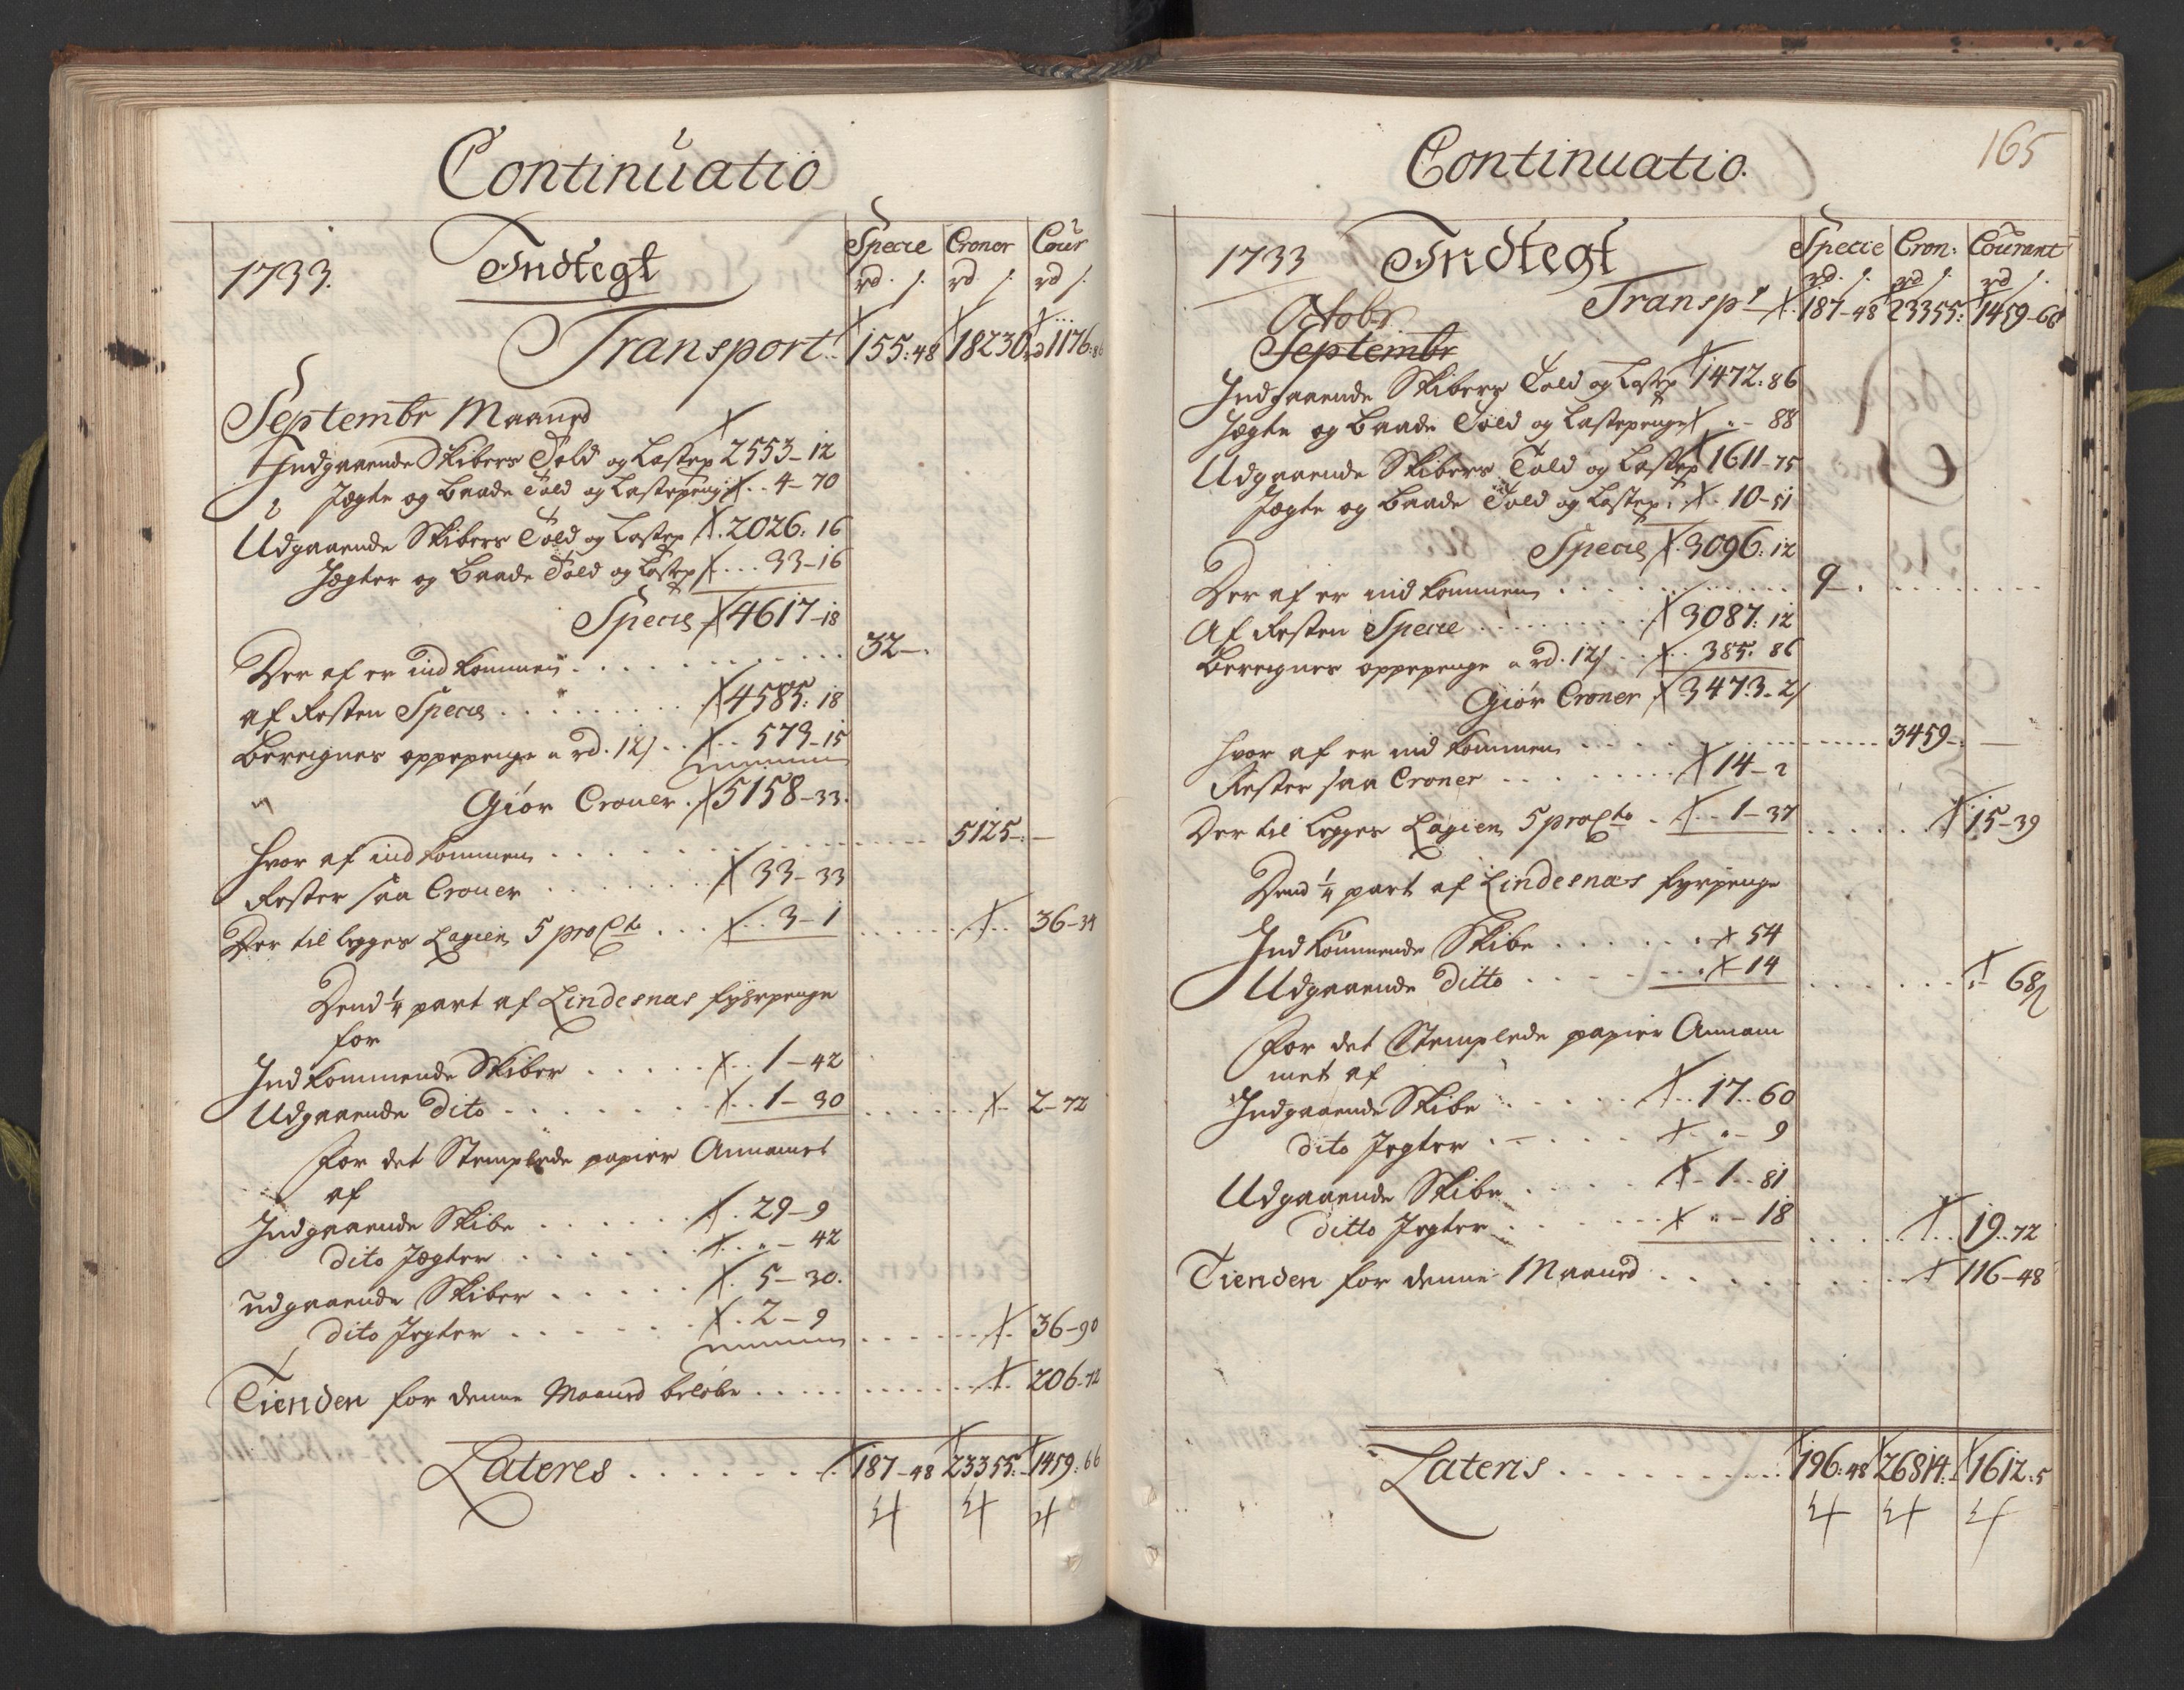 Continuatio
1733. Indtegt Specie Croner Cour
rd. s. rd s. rd s.
Transport. 155:48 18230 1176:86
Septembr Maaned
Indgaaende Skibers Told og Lastep 2553-12
Jægte og Baade Told og Lastepenge 4-70
Udgaaende Skibers Told og Lastep 2026:16
Jægter og Baade Told og Lastep 33-16
Specie 4617-18
Der af er ind kommen 32-
af Resten Specie 4585:18
Bereignes oppepenge a rd. 12s 573-15
Giør Croner. 5158-33.
Hvor af ind kommen 5125-
Rester saa Croner 33-33
Der til legges Lagien 5 pro Cto 3-1 36-34
Dend 1/4 part af Lindesnæs fyhrpenge
for
Indkommende Skiber 1-42
Udgaaende dito 1-30 2-72
For det Stemplede papier Annamet
af
Indgaaende Skibe 29-9
dito Jægter "-42
udgaaende Skiber 5-30.
dito Jegter 2-9 36-90
Tienden for denne Maaned beløbe 206-72
Lateres 187-48 23355:- 1459:66
165
Continuatio.
1733 Indtegt Specie Cron: Courant
rd. s. rd s. rd s.
Transpt 187-48 23355: 1459-66
Octobr
Septembr
Indgaaende Skibers Told og Lastep 1472:86
Jægte og Baade Told og Lastepenge "-88
Udgaaende Skibers Told og Lastep 1611-75
Jægte og Baade Told og Lastep: 10-51
Specie 3096:12
Der af er ind kommen 9-
Af Resten Specie 3087:12
Bereignes oppepenge a rd. 12s 385:86
Giør Croner 3473-2s
Hvor af er ind kommen 3459-
Rester saa Croner 14-2
Der til legges Lagien 5 pro Cto 1-37 15-39
Dend 1/4 part af Lindesnæs fyrpenge
Indkommende Skibe 54
Udgaaende Ditto 14 68s
For det Stemplede papier Annam
met af
Indgaaende Skibe 17..60
dito Jegter "-9
Udgaaende Skibe 1..81
ditto Jegter "-18 19..72
Tienden for denne Maaned 116-48
Lateris 196:48 26814:- 1612:5